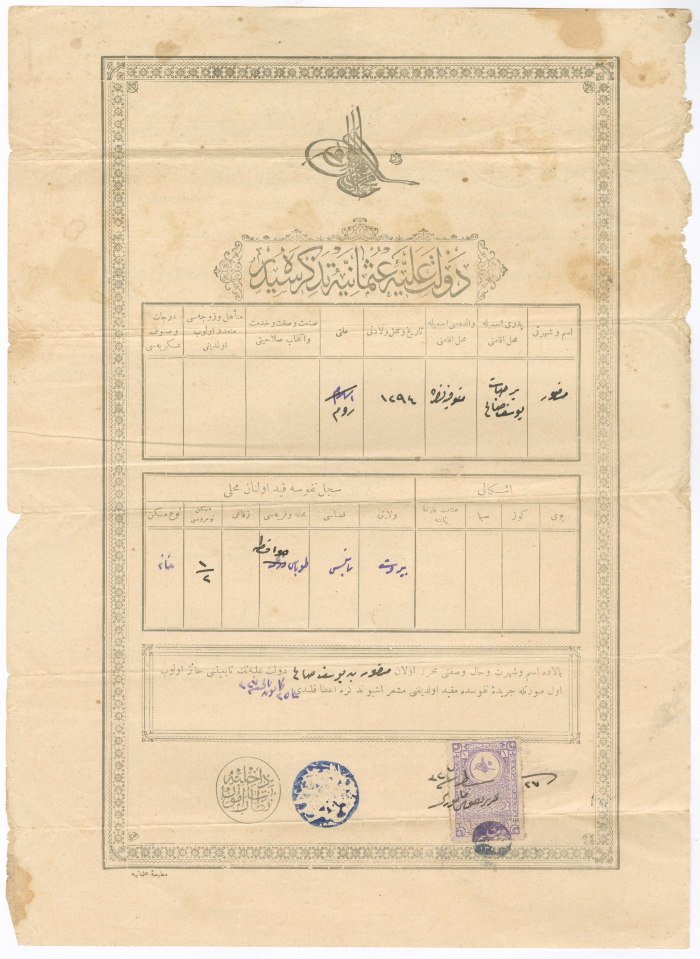 دولت علیهٔ عثمانیه تذکره سیدر
اسم و شهرتی
پدری اسمیله محل اقامتی
والده سی اسمیله محل اقامتی
تاریخ و محل ولادتی
ملتی
صنعت و صفت و خدمت و انتخاب صلاحیتی
متأهل و زوجه سی متعدد اولوب اولمدیغی
درجات و صنوف عسکریه سی
منصور
یوسف صالح
١٢٩٤
روم
اشکالی
سجل نفوسه قید اولنان محلی
بوی
کوز
سیما
علامت فارقهٔ ثابته
ولایتی
قضاسی
محله و قریه سی
زقاغی
مسکن نومروسی
نوع مسکن
بیروت
نابلس
طوباس
١
٢
خانه
بالاده اسم و شهرت و حال و صفتی محرر اولان منصور بن یوسف صالح دولت علیه نك تابعیتنی حائز اولوب
اول صورتله جریدهٔ نفوسده مقید اولدیغنی مشعر اشبو تذکره اعطا قلندی
داخلیه
مطبعهٔ عثمانیه